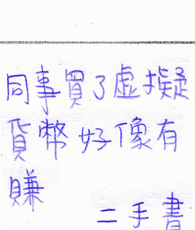 同事買了虛擬
貨幣好像有
賺
二手書